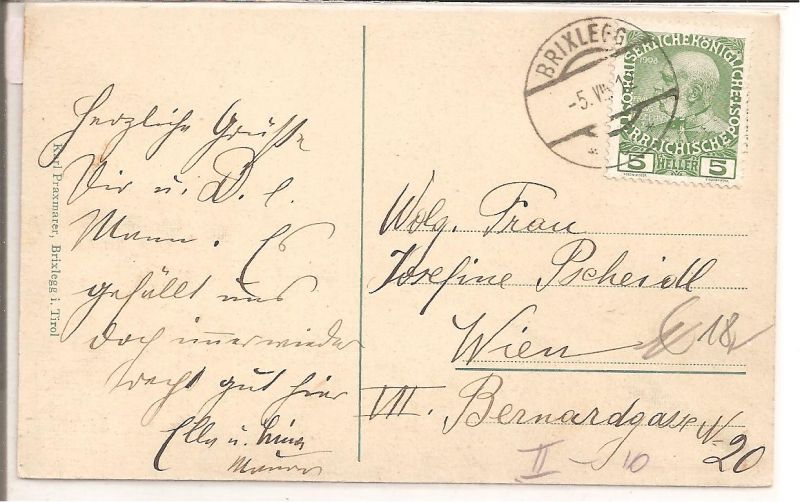 Herzliche Grüße
Dir u. D. l.
Mann. Es
gefällt uns
doch immer wieder
recht gut hier
Ella u.
Karl Praxmarer, Brixlegg i. Tirol
BRIXLEGG
-5. VII
KAISERLICHE KÖNIGLICHE
ÖSTERREICHISCHE POST
1908
5 HELLER 5
Wolg. Frau
Josefine Pscheidl
Wien
18
VII. Bernardgasse No
20
II - 10